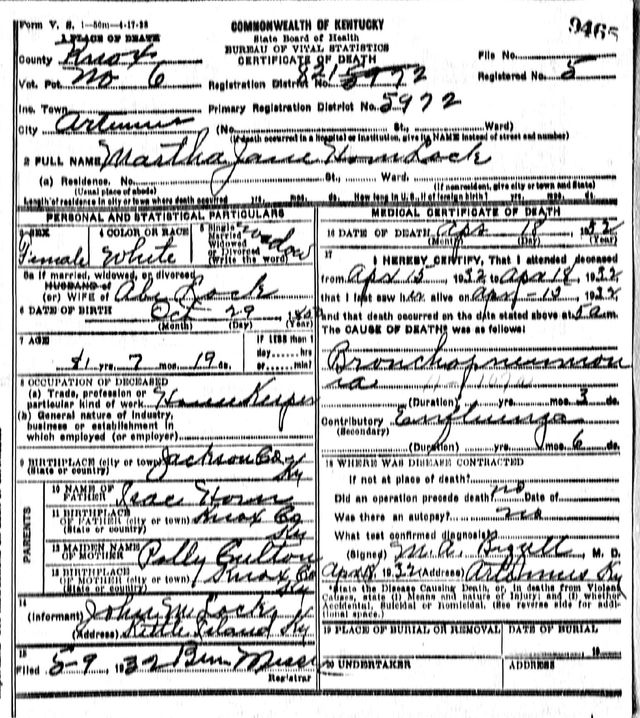 Form V. S. 1-50m-4-17-28
COMMONWEALTH OF KENTUCKY
9465
1 PLACE OF DEATH
State Board of Health
BUREAU OF VITAL STATISTICS
CERTIFICATE OF DEATH
County Knox
File No.
Vot. Pct. No 6
Registration District No. 821 5972
Registered No. 5
Inc. Town
Primary Registration District No. 5972
City Artemus (No. St., Ward)
(If death occurred in a hospital or institution, give its NAME instead of street and number)
2 FULL NAME Martha Jane Lock
(a) Residence. No. St., Ward.
(Usual place of abode) (If nonresident, give city or town and State)
Length of residence in city or town where death occurred yrs. mos. ds. How long in U. S., if of foreign birth? yrs. mos. ds.
PERSONAL AND STATISTICAL PARTICULARS
3 SEX Female
4 COLOR OR RACE White
5 Single Married Widowed or Divorced (Write the word) Widow
5a If married, widowed, or divorced
HUSBAND of
(or) WIFE of Abe Lock
6 DATE OF BIRTH Oct 29
(Month) (Day) (Year)
7 AGE
If LESS than 1
day hrs
81 yrs. 7 mos. 19 ds. or min?
8 OCCUPATION OF DECEASED
(a) Trade, profession or
particular kind of work House Keeper
(b) General nature of industry,
business or establishment in
which employed (or employer)
9 BIRTHPLACE (city or town) Jackson Co
(State or country) Ky
PARENTS
10 NAME OF FATHER Isac
11 BIRTHPLACE OF FATHER (city or town) Knox Co
(State or country) Ky
12 MAIDEN NAME OF MOTHER Polly Culton
13 BIRTHPLACE OF MOTHER (city or town) Knox Co
(State or country) Ky
14
(Informant) John M. Lock
(Address) Kettle Island Ky
15
Filed 5-9 1932 Ben
Registrar
MEDICAL CERTIFICATE OF DEATH
16 DATE OF DEATH Apr 18 1932
(Month) (Day) (Year)
17
I HEREBY CERTIFY, That I attended deceased
from Apr 15 1932 to Apr 18, 1932
that I last saw her alive on Apr - 1932
and that death occurred on the date stated above at 5 am.
The CAUSE OF DEATH was as follows:
Bronchopneumon
ia
(Duration) yrs. mos. 3 ds.
Contributory Enfluenza
(Secondary)
(Duration) yrs. mos. 6 ds.
18 WHERE WAS DISEASE CONTRACTED
If not at place of death?
Did an operation precede death? no Date of
Was there an autopsy? no
What test confirmed diagnosis?
(Signed) M. D.
Apr 18, 1932 (Address) Artemus Ky
*State the Disease Causing Death, or, in deaths from Violent
Causes, state (1) Means and nature of Injury; and (2) whether
Accidental, Suicidal or Homicidal. (See reverse side for addi-
tional space.)
19 PLACE OF BURIAL OR REMOVAL
DATE OF BURIAL
19
20 UNDERTAKER
ADDRESS